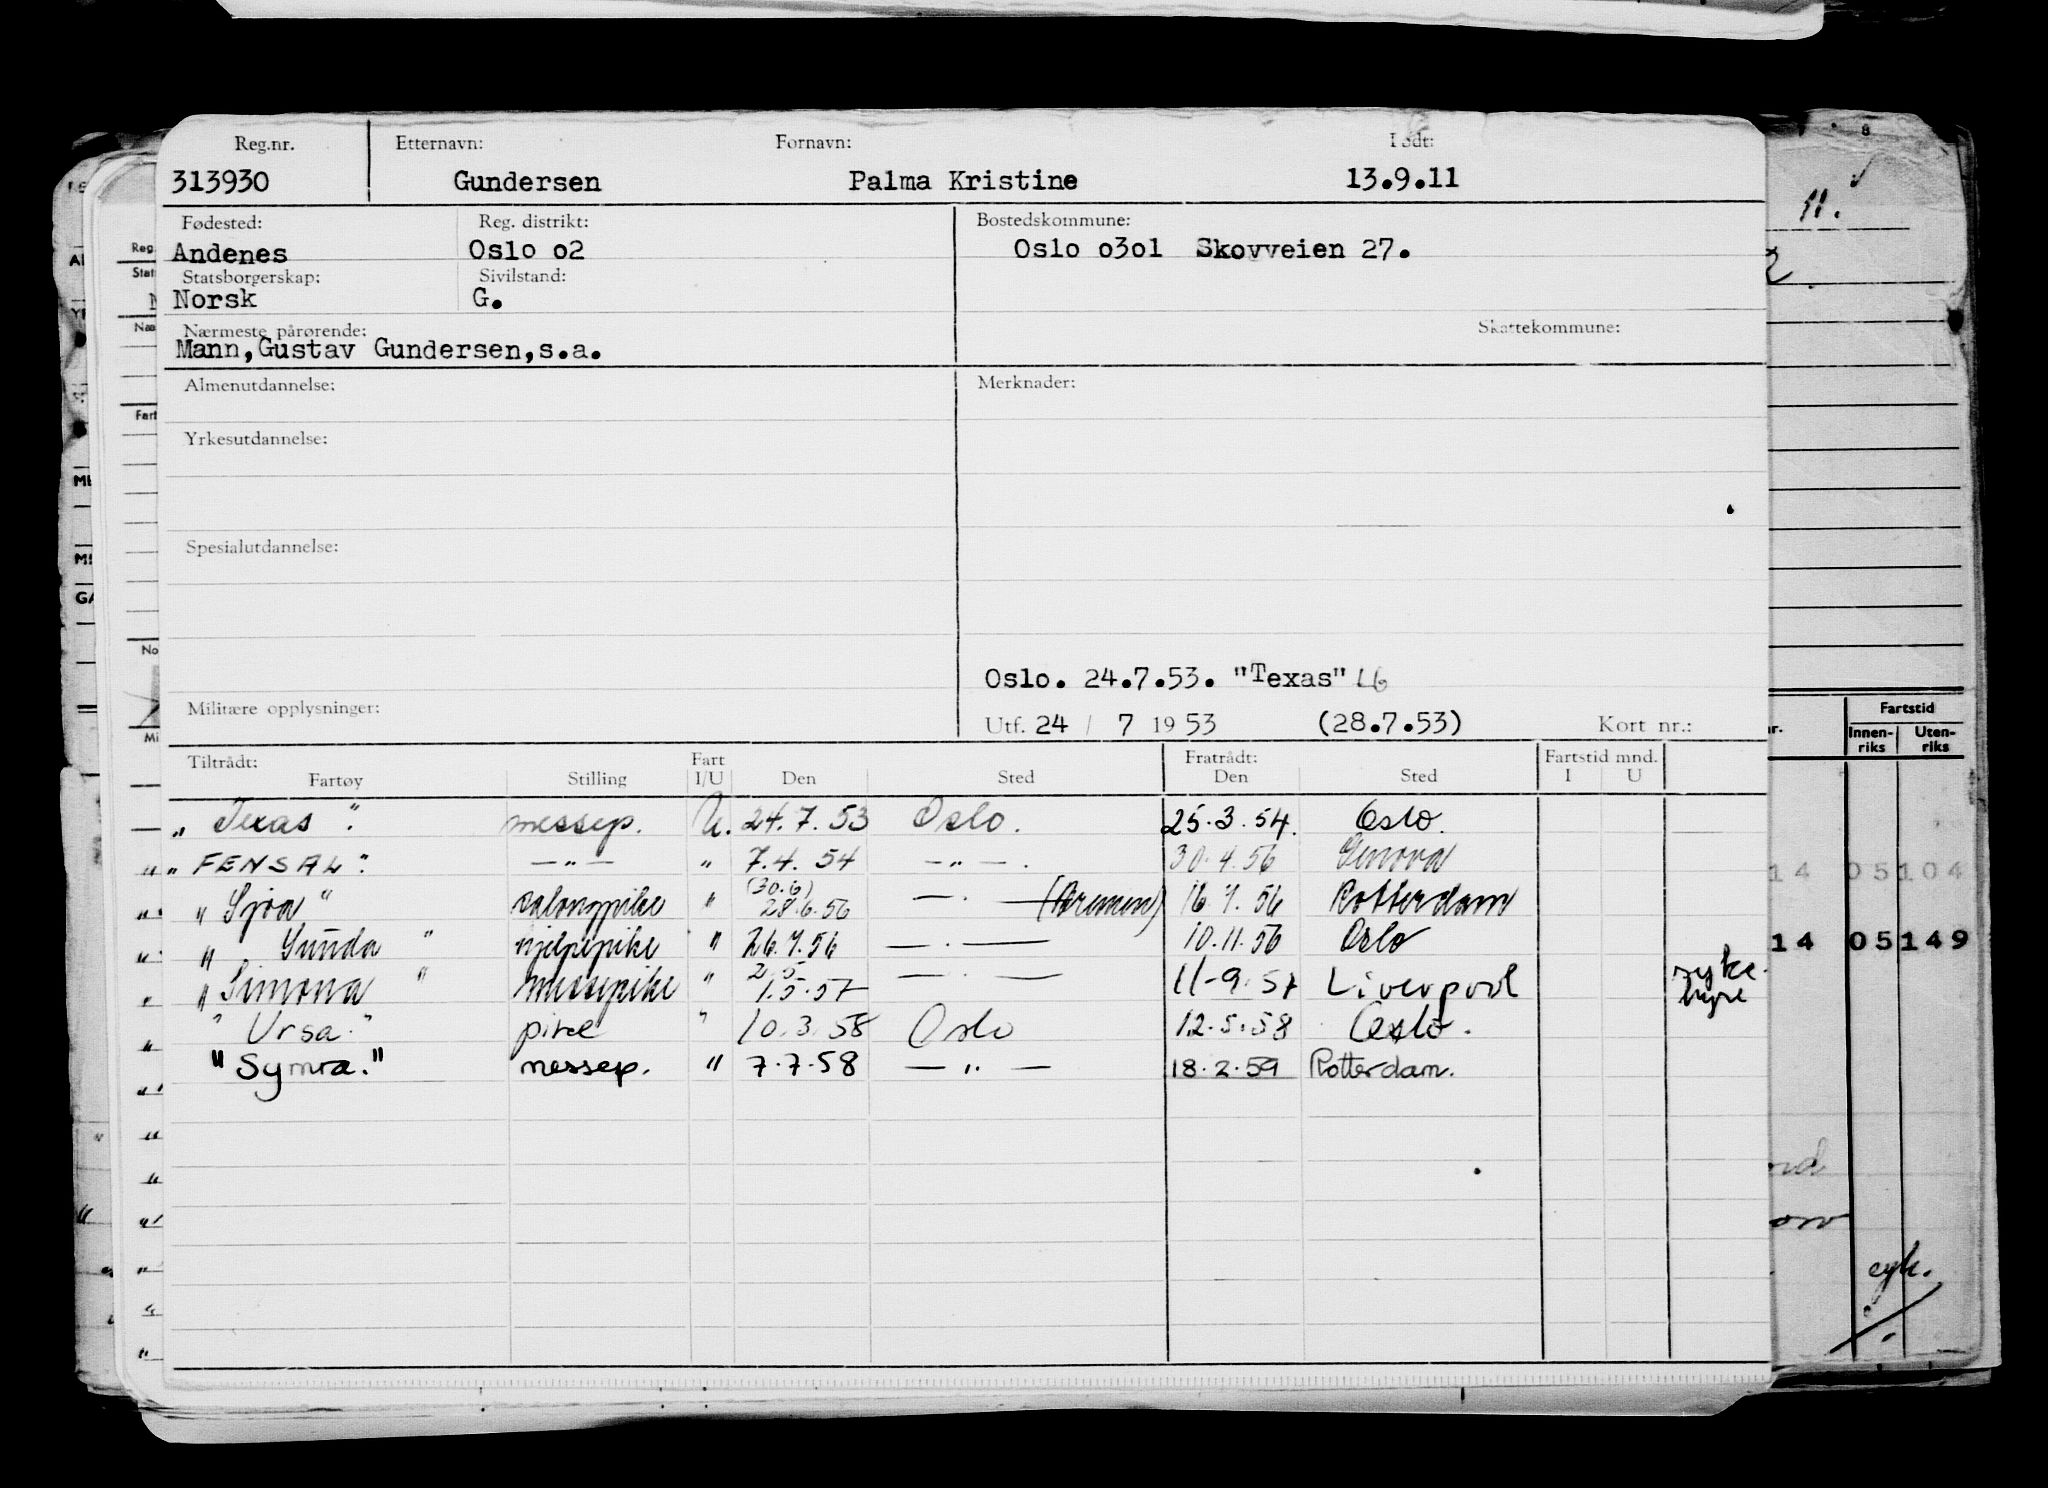 Reg.nr. Etternavn: Fornavn: Født:
313930 Gundersen Palma Kristine 13.9.11
Fødested: Reg. distrikt: Bostedskommune:
Andenes Oslo o2 Oslo o3o1 Skovveien 27.
Statsborgerskap: Sivilstand:
Norsk G.
Nærmeste pårørende: Skattekommune:
Mann,Gustav Gundersen,s.a.
Almenutdannelse: Merknader:
Yrkesutdannelse:
Spesialutdannelse:
Oslo. 24.7.53. "Texas" LG
Militære opplysninger:
Utf. 24 / 7 1953 (28.7.53) Kort nr.:
Tiltrådt: Fart Fratrådt: Fartstid mnd.
Fartøy Stilling I/U Den Sted Den Sted I U
" Texas ". messep. U. 24.7.53 Oslo. 25.3.54. Oslo.
" FENSAL". — " — " 7.4.54 — " — . 30.4.56 Genova
(30.6)
" Sjoa " salongpike " 28.6.56 — . — (Bremen) 16.7.56 Rotterdam
" Sunda " hjelpepike " 26.7.56 — . — 10.11.56 Oslo
2.5
" Simona " messepike " 1.5.57 — . — 11-9.57 Liverpool syke-
hyre
" Ursa." pike " 10.3.58 Oslo 12.5.58 Oslo.
" Symra." messep. " 7.7.58 — " — 18.2.59 Rotterdam.
Fartstid
Innen- Uten-
riks riks
14 05104
14 05149